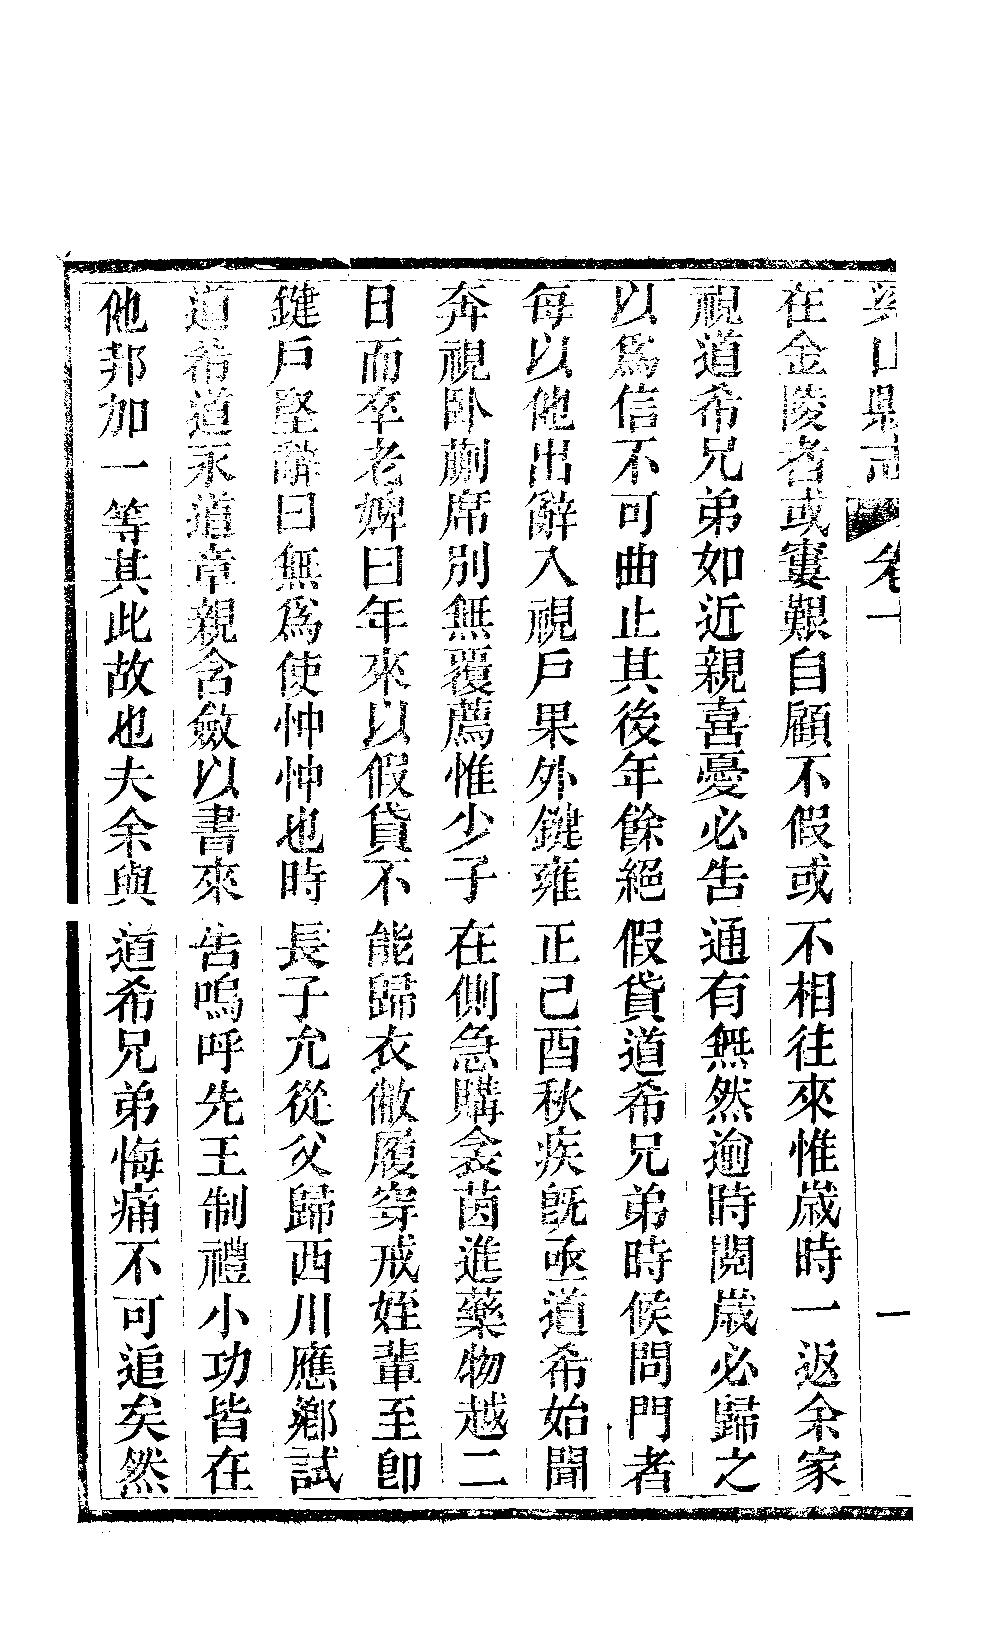 山縣志 卷一 一
在金陵者或寠艱自顧不假或不相往來惟歲時一返余家
視道希兄弟如近親喜憂必告通有無然逾時閱歲必歸之
以爲信不可曲止其後年餘絕假貸道希兄弟時候問門者
每以他出辭入視戶果外鍵雍正己酉秋疾旣亟道希始聞
奔視卧蒯席別無覆薦惟少子在側急購衾茵進藥物越二
日而卒老婢曰年來以假貸不能歸衣敝履穿戒姪輩至卽
鍵戶堅辭曰無爲使忡忡也時長子允從父歸西川應鄕試
道希道永道章親含斂以書來告嗚呼先王制禮小功皆在
他邦加一等其此故也夫余與道希兄弟悔痛不可追矣然